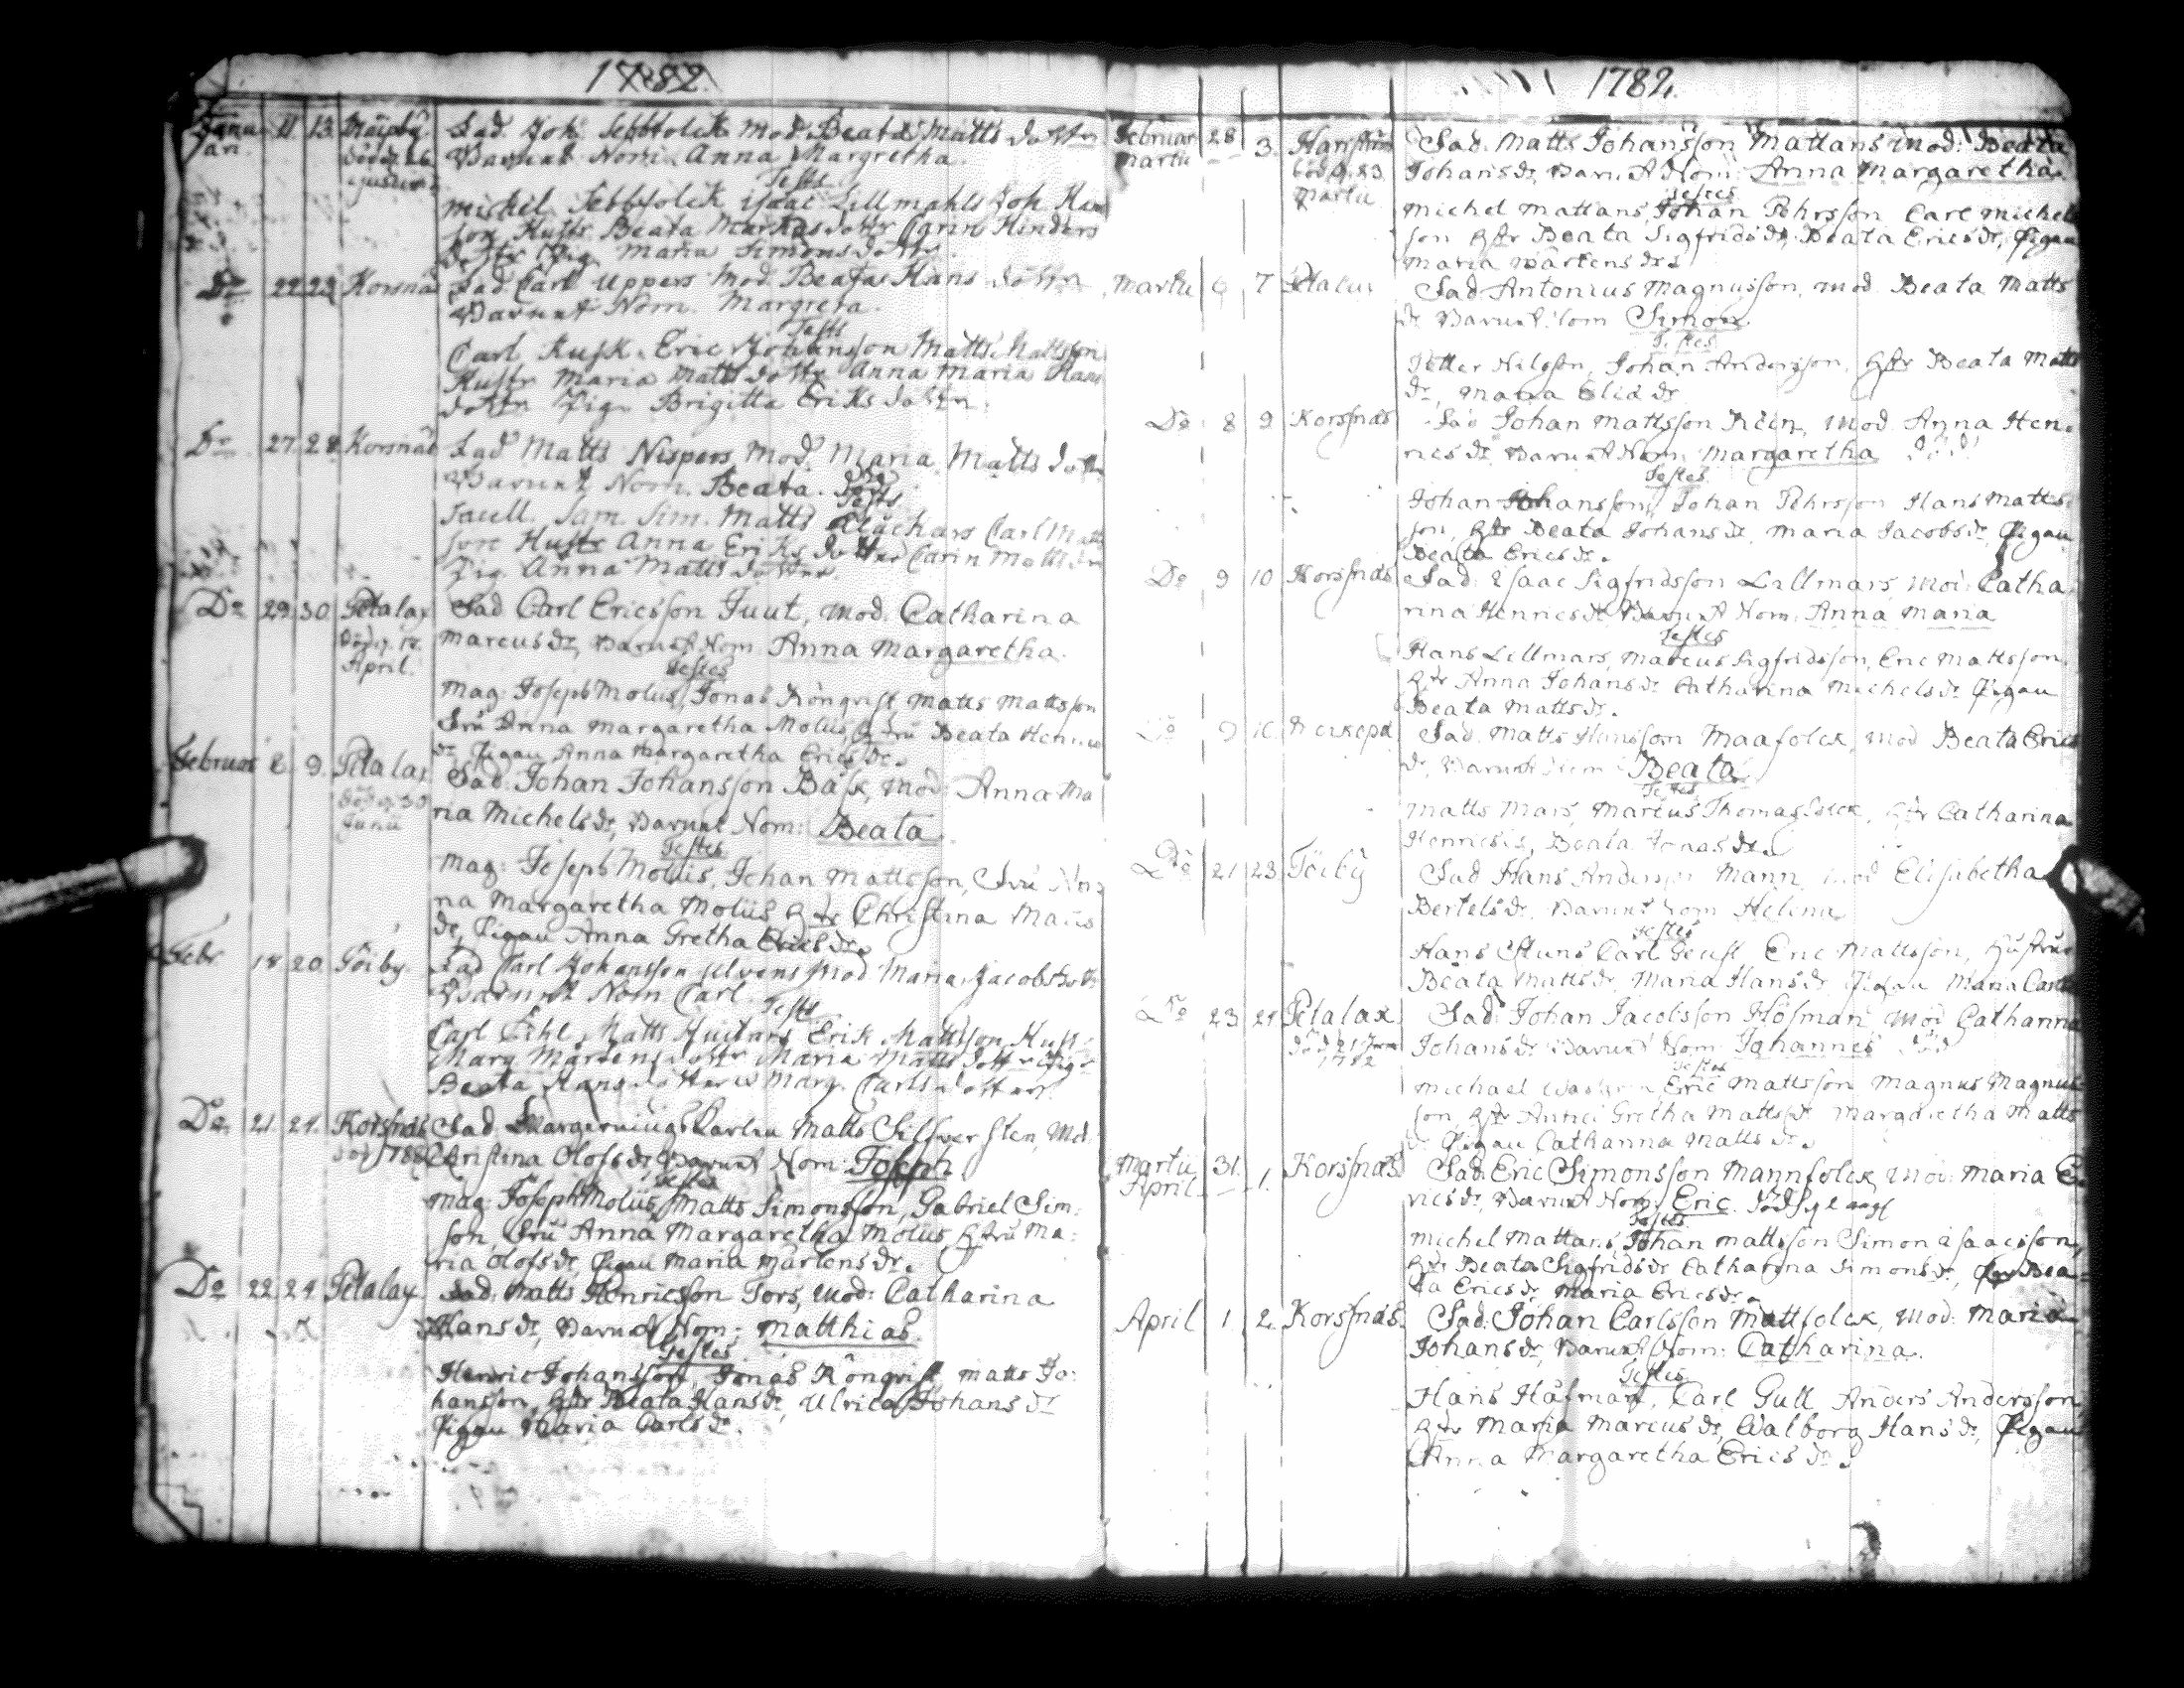 1782.
Janu 11 13. Fad. Joh. Sebbfolck mod. Beata Matts dotter
Jan. död d. 26 Barnet Nom. Anna Margretha.
Testes
Michel Sebbfolck Isaac Lillmahls Joh
son Hustr Beata Marcusdotter Carin Hinders
dotter Pig. Maria Simonsdotter.
Do 22 23 Korsnäs Fad Carl Uppers Mod. Beata Hans dotter
Barnet Nom. Margreta.
Testes
Carl Rusk. Eric Johansson Matts Mattsson
Hustr Maria Mattsdotter Anna Maria Hans
dotter Pig. Brigitta Eriksdotter.
Do 27 28 Korsnäs Fad Matts Nispers Mod. Maria Matts dotter
Barnet Nom. Beata.
Testes
Sacell. Sam. Sim. Matts Carl Matts
son Hustr Anna Eriks dotter Carin Matts dr
Pig. Anna Matts dotter.
Do 29 30 Petalax Fad Carl Ericsson Juut, Mod: Catharina
död d. 18. Marcus dr, Barnet Nom: Anna Margaretha.
April. Testes
Mag: Joseph Molius, Jonas Rönqvist Matts Mattsson
Fru Anna Margaretha Molius, Hustru Beata Henrics
dr, Pigan Anna Margaretha Erics dr.
Februar 8. 9. Petalax Fad: Johan Johansson Bäsk, Mod: Anna Ma
död d. 30 ria Michels dr, Barnet Nom: Beata.
Junii Testes
Mag: Joseph Molius, Johan Mattsson, Fru An
na Margaretha Molius Hustr Christina Matts
dr, Pigan Anna Gretha Erics dr.
Febr 18 20. Töiby. Fad Carl Johansson Ulvens Mod Maria Jacobsdotter
Barnet Nom Carl. Testes
Carl Matts Erik Mattsson, Hustr
Marg Mårtens dotter Maria Matts dotter Pigr
Beata Hans dotter Marg. Carls dotter.
Do 21 24. Korsnäs Fad. Matts Silfwersten, Md.
Christina Olofs dr, Barnet Nom: Joseph
Testes
Mag: Joseph Molius, Matts Simonsson, Gabriel Sim:
son Fru Anna Margaretha Molius Hustru Ma:
ria Olofs dr, Pigan Maria Mårtens dr.
Do 22 24 Petalax Fad: Matts Henricsson Tors, Mod: Catharina
Hans dr, Barnet Nom: Matthias.
Testes
Henric Johansson, Jonas Rönqvist, Matts Jo:
hansson, Hustr Beata Hans dr, Ulrica Johans dr
Pigan Maria Carls dr.
1782.
Februar 28 Fad: Matts Johansson Mattans Mod: Beata
Martii 3. död d. 23 Johans dr, Barnet Nom: Anna Margaretha.
Martii Testes
Michel Mattans, Johan Pehrsson Carl Michels
son Hustr Beata Sigfrids dr, Beata Erics dr, Pigan
Maria Mårtens dr.
Martii 6 7 Petalax Fad Antonius Magnusson, Mod Beata Matts
dr Barnet Nom Simon.
Testes
Petter Nilsson, Johan Andersson, Hustr Beata Matts
dr, Maria Elia dr
Do 8 9 Korsnäs Fad Johan Mattsson Mod. Anna Hen:
rics dr Barnet Nom: Margaretha död
Testes.
Johan Johansson, Johan Pehrsson Hans Matts
son, Hustr Beata Johans dr, Maria Jacobs dr, Pigan
Beata Erics dr.
Do 9 10 Korsnäs Fad: Isaac Sigfridsson Lillmars, Mod: Catha
rina Henrics dr Barnet Nom: Anna Maria
Testes
Hans Lillmars, Marcus Sigfridsson, Eric Mattsson,
Hustr Anna Johans dr Catharina Michels dr Pigan
Beata Matts dr.
Do 9 10. Fad. Matts Hansson Maafolck, Mod Beata Erics
dr, Barnet Nom: Beata
Testes
Matts Mars, Marcus Thomasfolck, Hustr Catharina
Henrics dr, Beata Jonas dr.
Do 21 23 Töiby Fad Hans Andersson Mann, Mod Elisabetha
Bertels dr, Barnet Nom Helena
Testes
Hans Carl Eric Mattsson, Hustru
Beata Matts dr, Maria Hans dr Pigan Maria Carls
Do 23 24. Petalax Fad: Johan Jacobsson Höfman, Mod Catharina
1782 Johans dr Barnet Nom: Johannes död
Testes
Michael Eric Mattsson Magnus Magnus
son, Hustr Anna Gretha Matts dr Margaretha Matts
dr Pigan Catharina Matts dr.
Martii 31. Korsnäs Fad: Eric Simonsson Mannfolck, Mod: Maria E
April 1. rics dr, Barnet Nom: Eric.
Testes
Michel Mattans, Johan Mattsson Simon Isaacsson,
Hustr Beata Sigfrids dr Catharina Simons dr, Bea=
ta Erics dr, Maria Erics dr.
April 1. 2. Korsnäs. Fad: Johan Carlsson Mattfolck, Mod: Maria
Johans dr, Barnet Nom: Catharina.
Testes
Hans Häfman, Carl Gull Anders Andersson
Hustr Maria Marcus dr, Walborg Hans dr, Pigan
Anna Margaretha Erics dr.